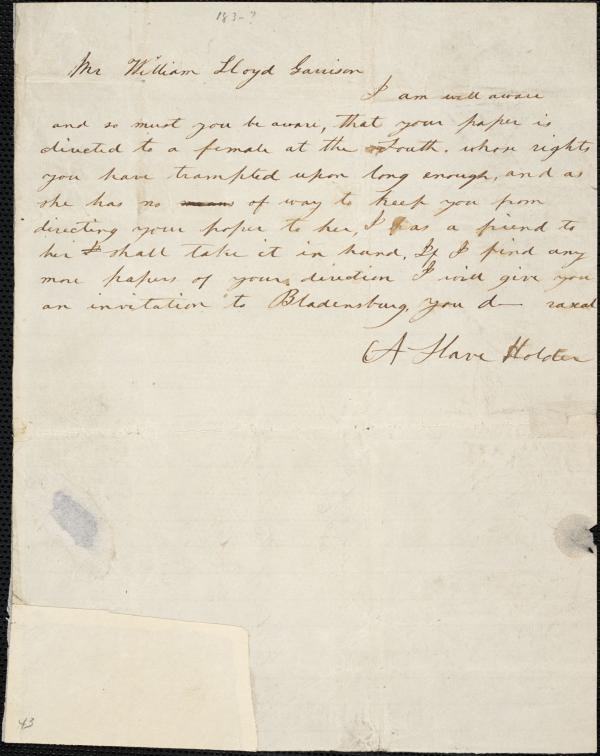 183-?
Mr William Lloyd Garrison
I am well aware
and so must you be aware, that your paper is
directed to a female at the South. whose rights
you have trampled upon long enough, and as
she has no means of way to keep you from
directing your paper to her, I as a friend to
her I shall take it in hand, If I find any
more papers of yours direction I will give you
an invitation to Bladensburg, you d— raxal
A Slave Holder
43